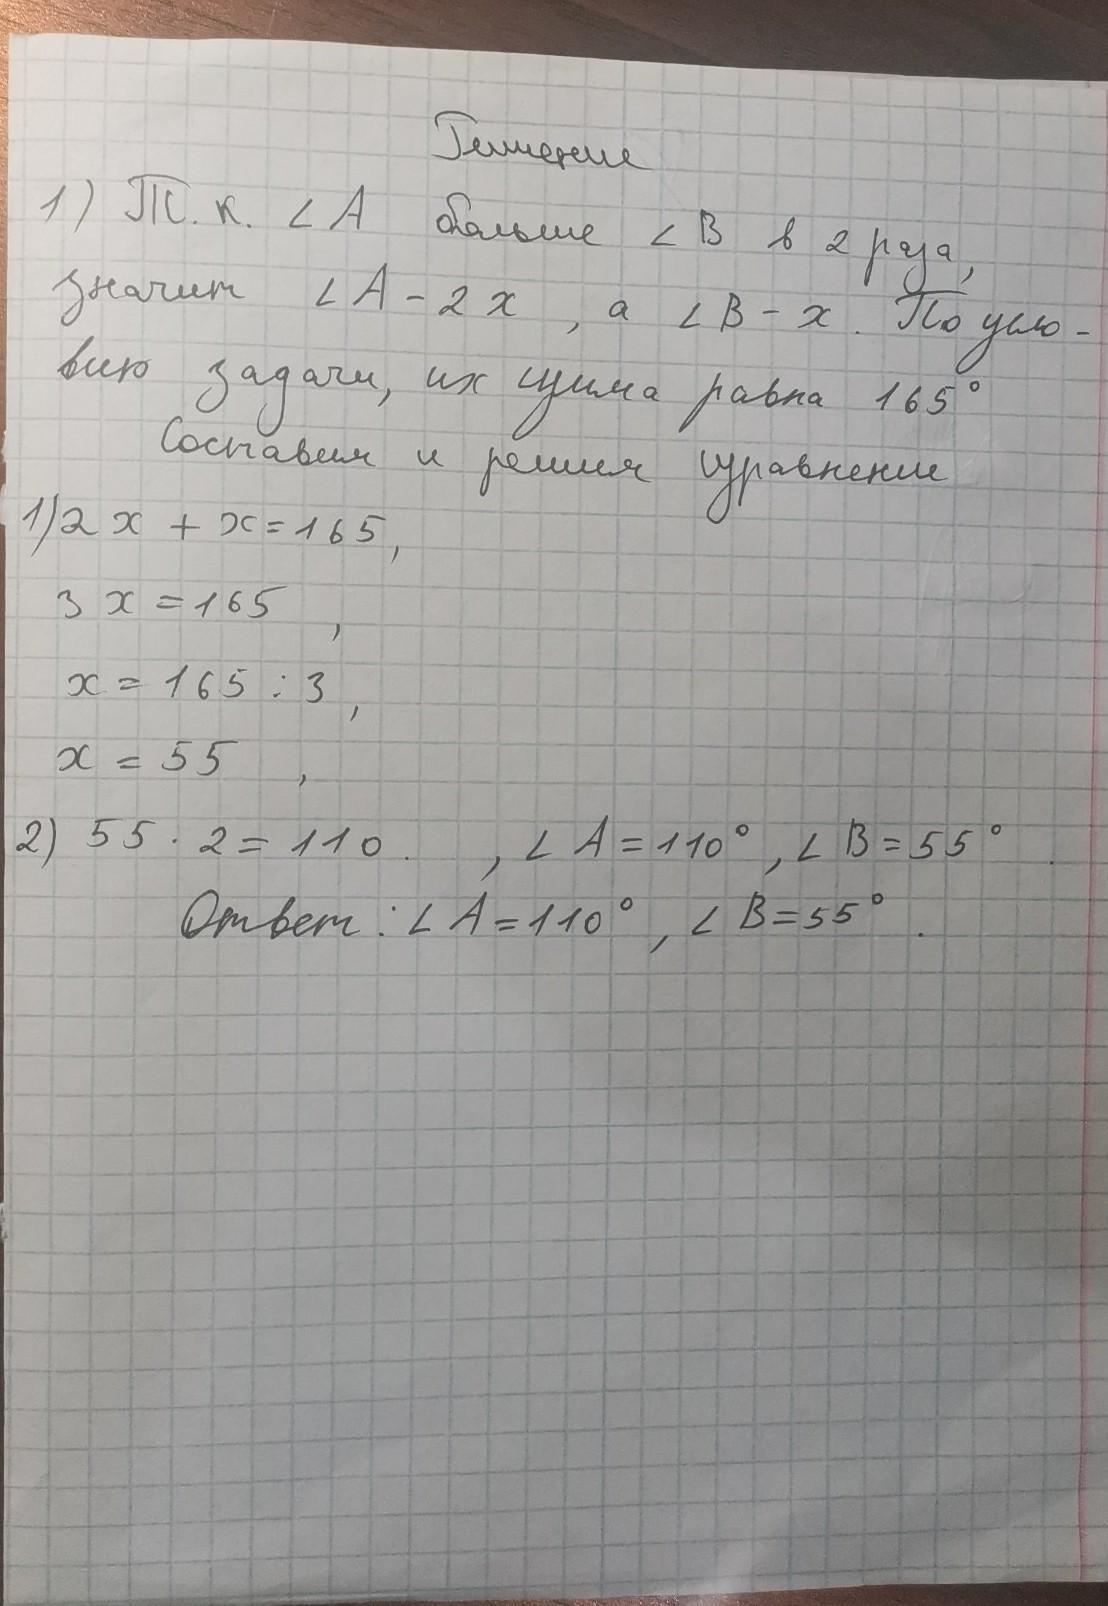 Решение
1) Т.к. ∠A больше ∠B в 2 раза,
значит ∠A - 2x, а ∠B - x. По усло-
вию задачи, их сумма равна 165°
Составим и решим уравнение
1) 2x + x = 165,
3x = 165,
x = 165 : 3,
x = 55,
2) 55 · 2 = 110. , ∠A = 110°, ∠B = 55°.
Ответ: ∠A = 110°, ∠B = 55°.